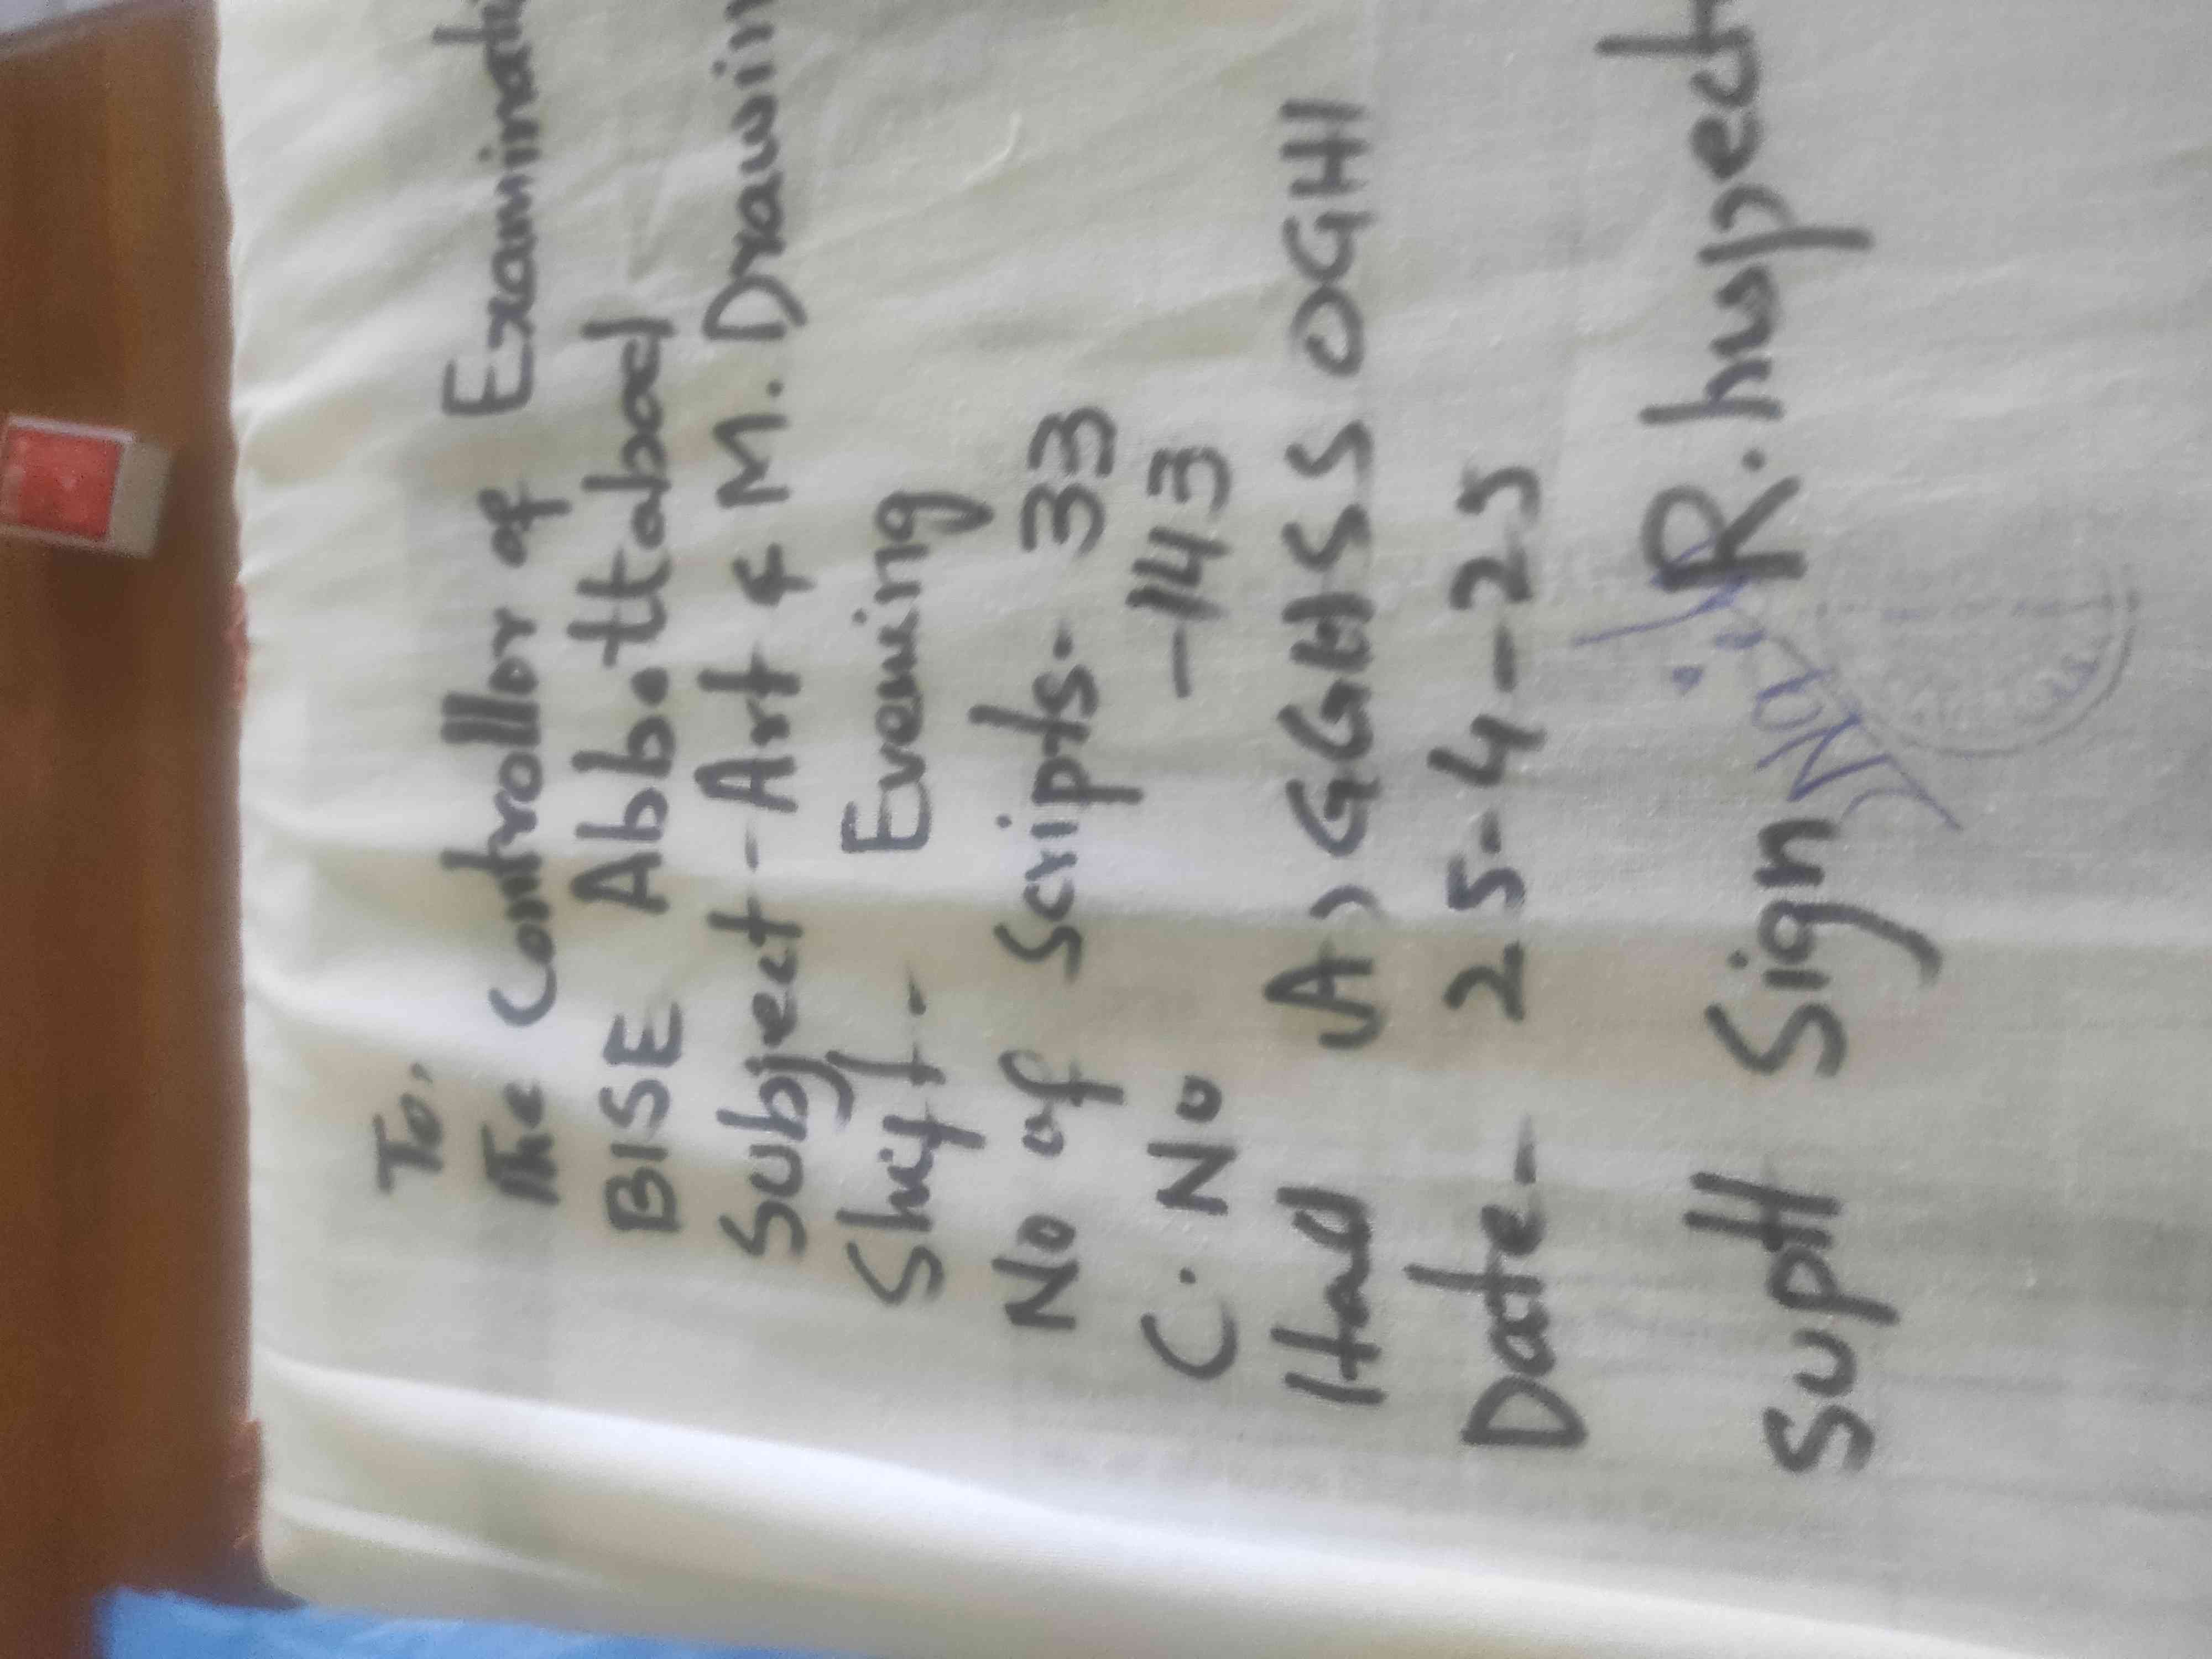 To,
The Controllor of Examinatio
BISE Abbottabad
Subject - Art & M. Drawin
Shift - Evening
No of Scripts - 33
C. No - 143
Hall (A) GGHSS OGHI
Date - 25-4-25
Suptt Sign R.